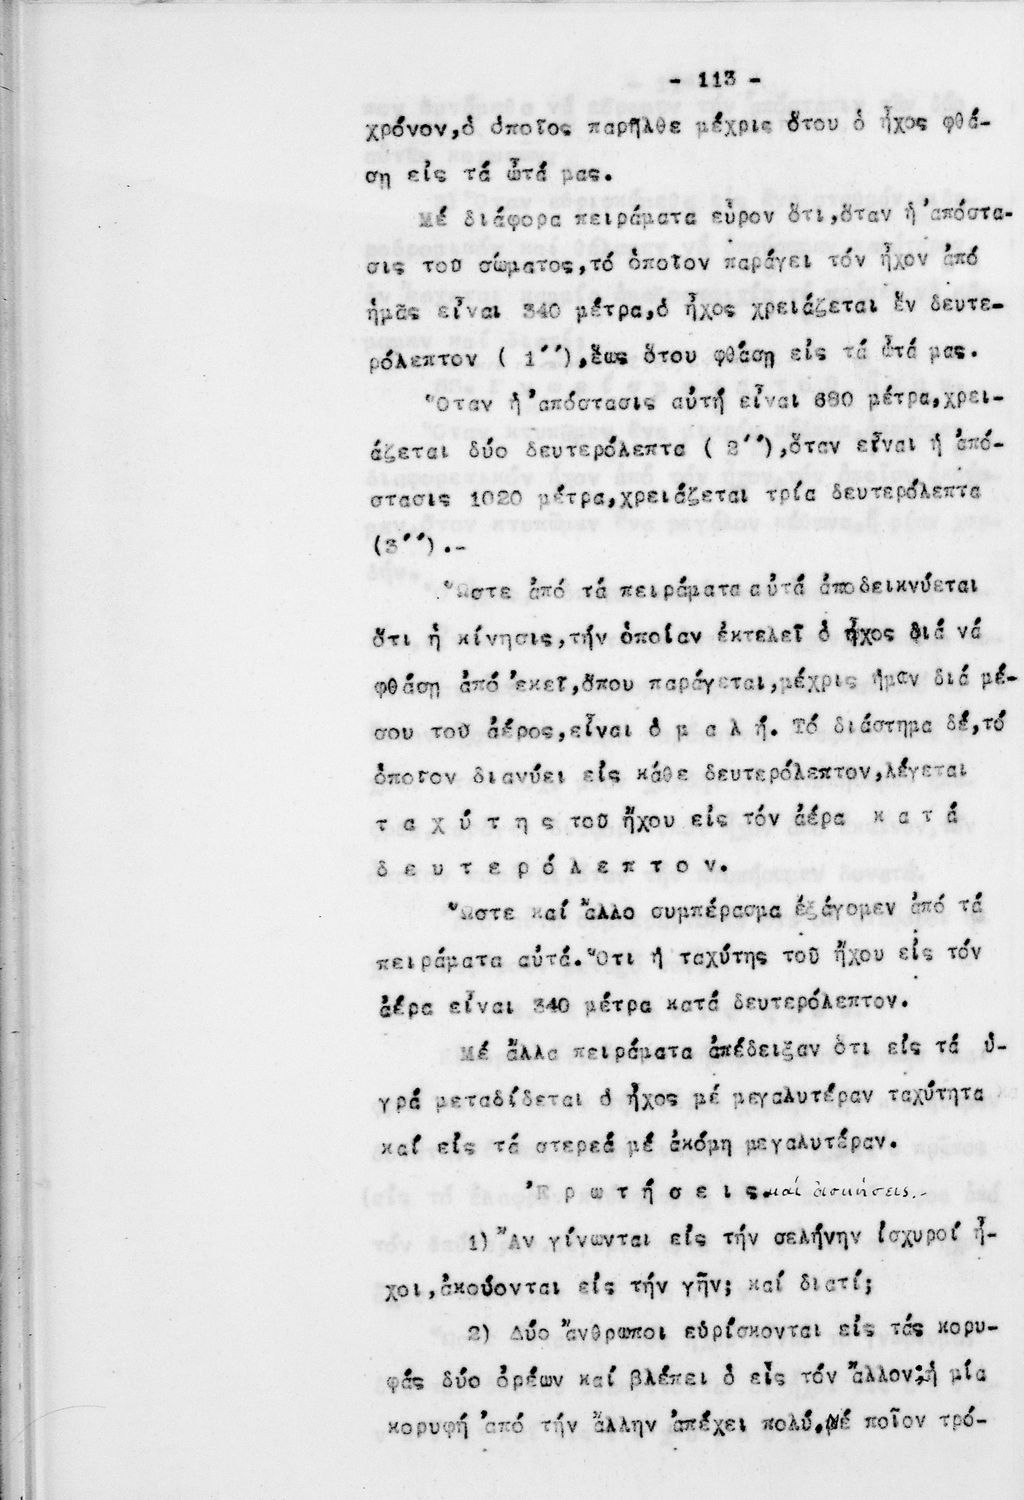 - 113 -
χρόνον,ὁ ὁποῖος παρῆλθε μέχρις ὅτου ὁ ἦχος φθά-
σῃ εἰς τά ὦτά μας.
Μέ διάφορα πειράματα εὗρον ὅτι,ὅταν ἡ ἀπόστα-
σις τοῦ σώματος,τό ὁποῖον παράγει τόν ἦχον ἀπό
ἡμᾶς εἶναι 340 μέτρα,ὁ ἦχος χρειάζεται ἕν δευτε-
ρόλεπτον ( 1΄΄),ἕως ὅτου φθάσῃ εἰς τά ὦτά μας.
Ὅταν ἡ ἀπόστασις αὐτή εἶναι 680 μέτρα,χρει-
άζεται δύο δευτερόλεπτα ( 2΄΄),ὅταν εἶναι ἡ ἀπό-
στασις 1020 μέτρα,χρειάζεται τρία δευτερόλεπτα
(3΄΄).-
Ὥστε ἀπό τά πειράματα αὐτά ἀποδεικνύεται
ὅτι ἡ κίνησις,τήν ὁποίαν ἐκτελεῖ ὁ ἦχος διά νά
φθάσῃ ἀπό ἐκεῖ,ὅπου παράγεται,μέχρις ἡμῶν διά μέ-
σου τοῦ ἀέρος,εἶναι ὁ μ α λ ή. Τό διάστημα δέ,τό
ὁποῖον διανύει εἰς κάθε δευτερόλεπτον,λέγεται
τ α χ ύ τ η ς τοῦ ἤχου εἰς τόν ἀέρα κ α τ ά
δ ε υ τ ε ρ ό λ ε π τ ο ν.
Ὥστε καί ἄλλο συμπέρασμα ἐξάγομεν ἀπό τά
πειράματα αὐτά.Ὅτι ἡ ταχύτης τοῦ ἤχου εἰς τόν
ἀέρα εἶναι 340 μέτρα κατά δευτερόλεπτον.
Μέ ἄλλα πειράματα ἀπέδειξαν ὅτι εἰς τά ὑ-
γρά μεταδίδεται ὁ ἦχος μέ μεγαλυτέραν ταχύτητα
καί εἰς τά στερεά μέ ἀκόμη μεγαλυτέραν.
Ἐ ρ ω τ ή σ ε ι ς.καί ἀσκήσεις.-
1) Ἄν γίνωνται εἰς τήν σελήνην ἰσχυροί ἦ-
χοι,ἀκούονται εἰς τήν γῆν; καί διατί;
2) Δύο ἄνθρωποι εὑρίσκονται εἰς τάς κορυ-
φάς δύο ὀρέων καί βλέπει ὁ εἷς τόν ἄλλον;ἡ μία
κορυφή ἀπό τήν ἄλλην ἀπέχει πολύ.Μέ ποῖον τρό-